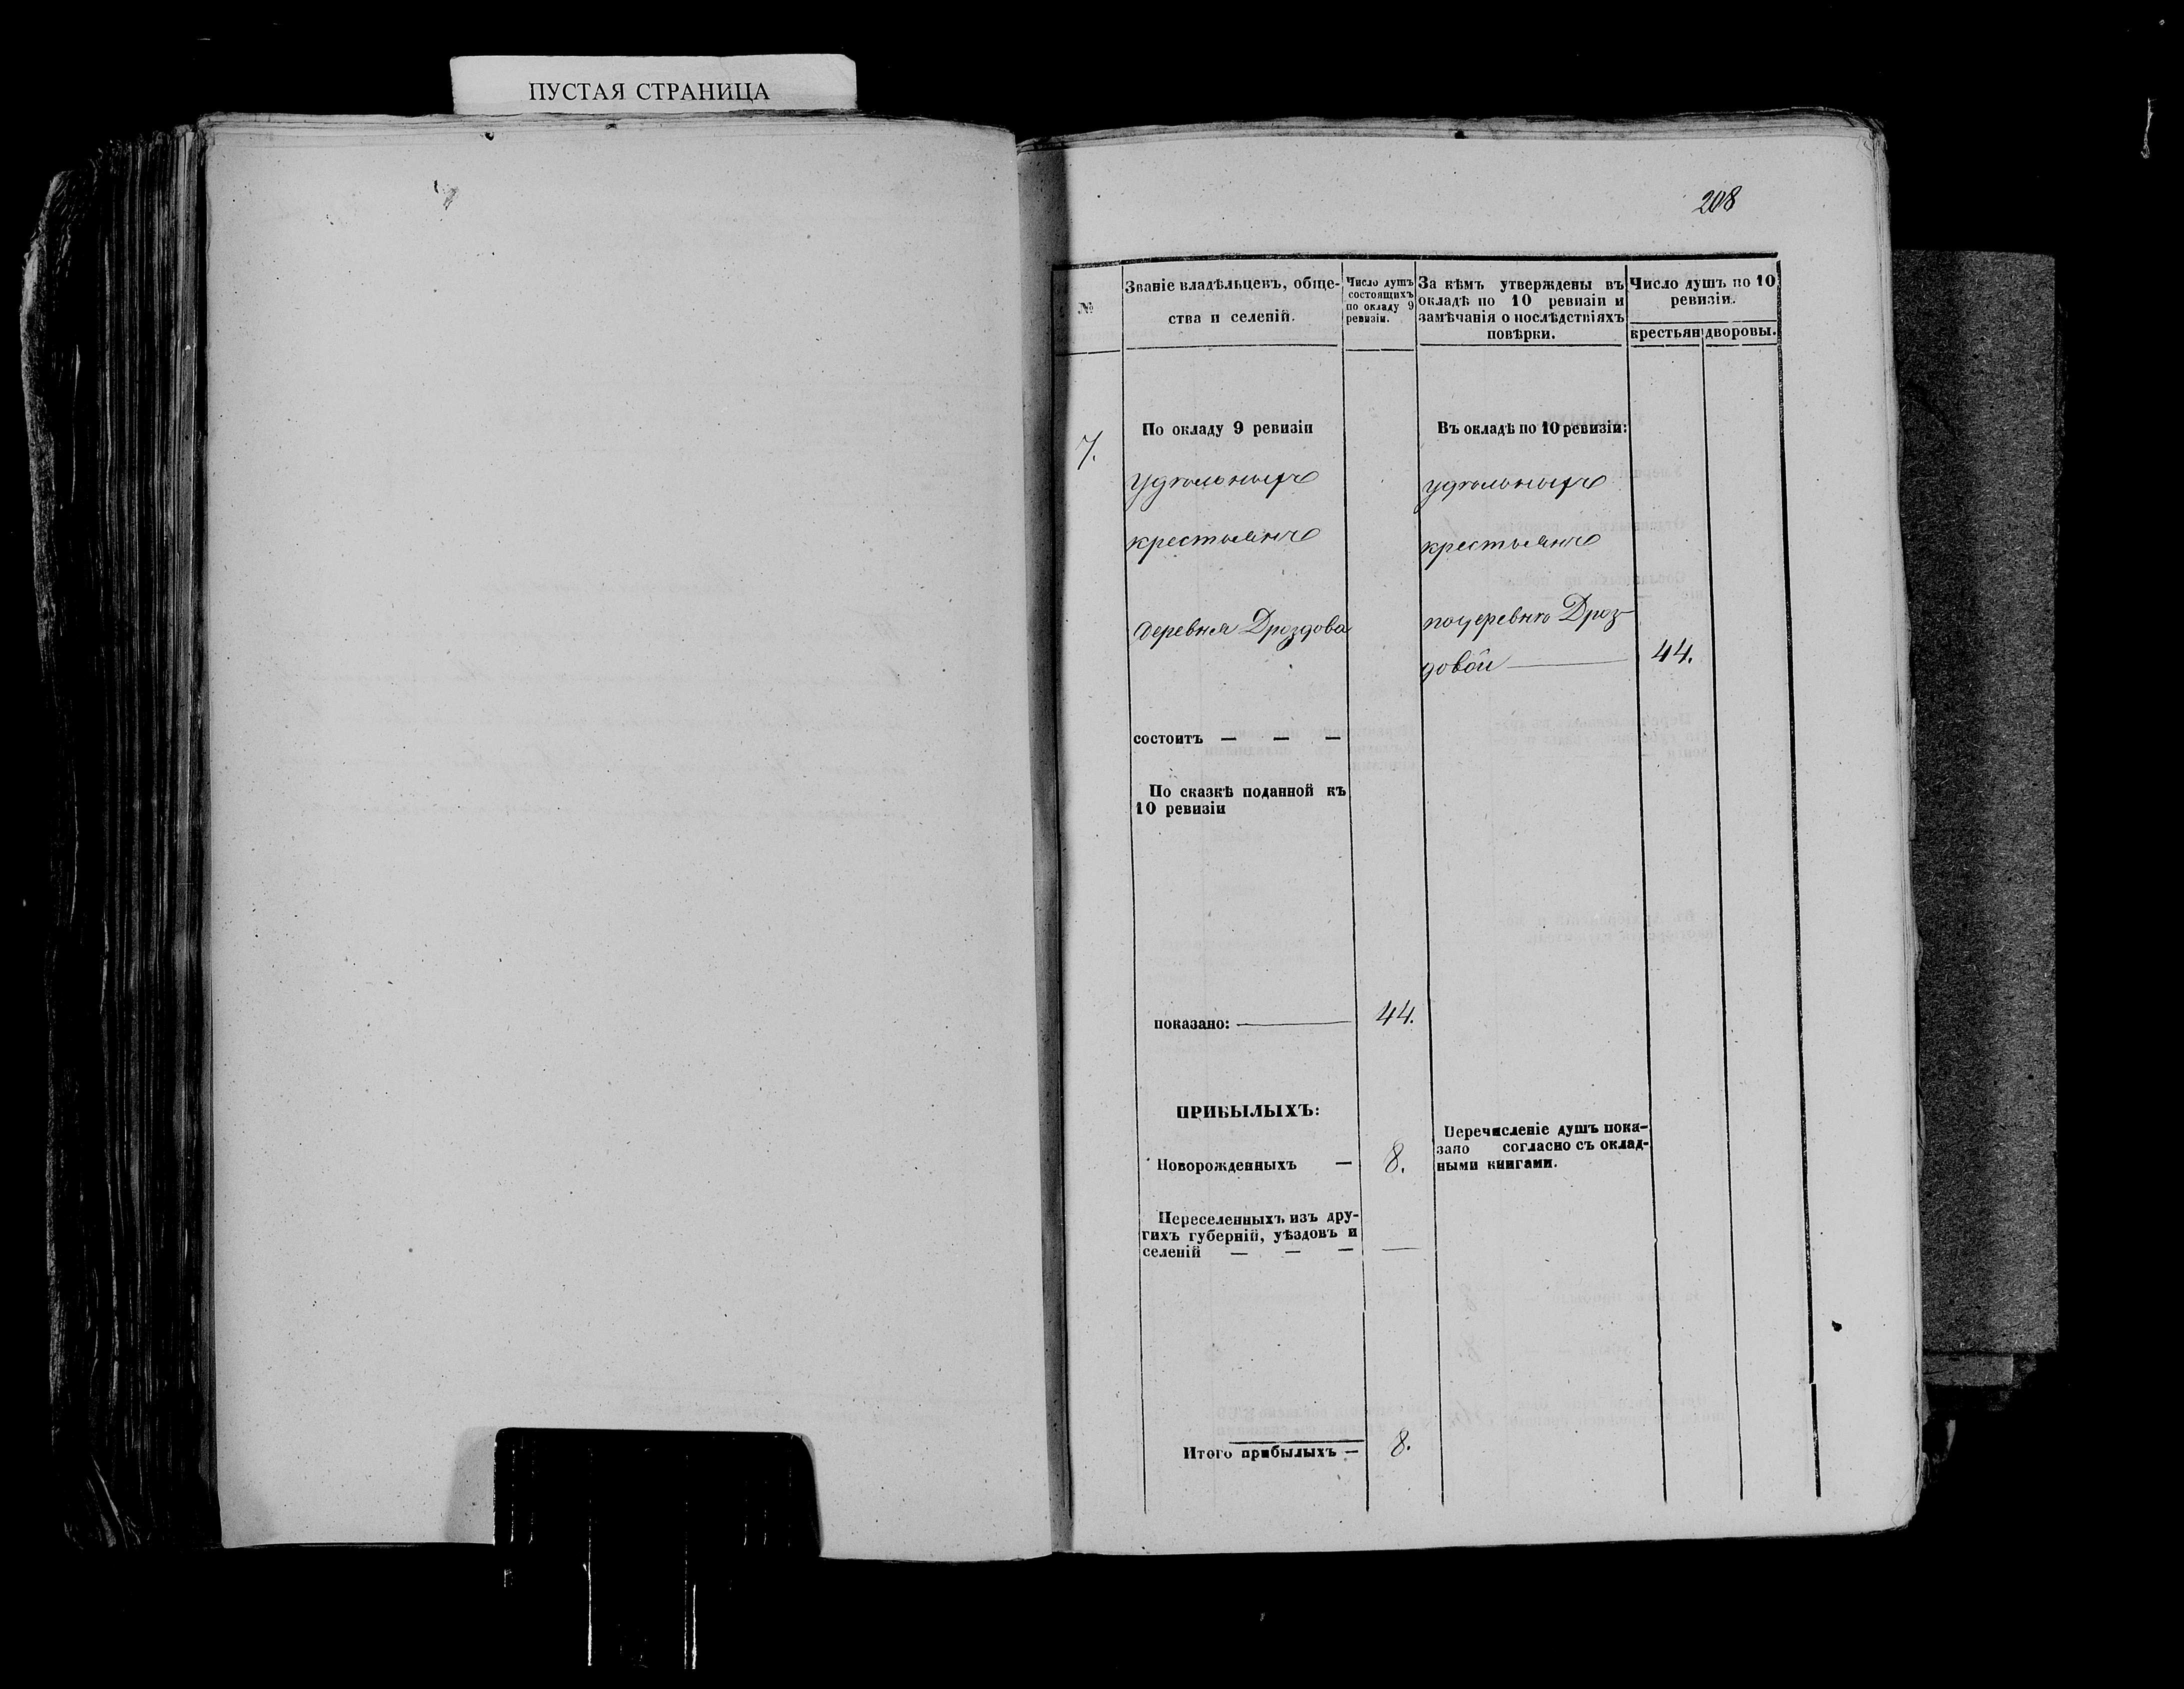 ПУСТАЯ СТРАНИЦА
208
№
Званіе владѣльцевъ, обще-
ства и селеній.
Число душъ
состоящихъ
по окладу 9
ревизіи.
За кѣмъ утверждены въ
окладѣ по 10 ревизіи и
замѣчанія о послѣдствіяхъ
повѣрки.
Число душъ по 10
ревизіи.
крестьян
дворовы.
7.
По окладу 9 ревизіи
удѣльныхъ
крестьянъ
деревня Дроздова
состоитъ — — —
По сказкѣ поданной къ
10 ревизіи
показано: — 44.
ПРИБЫЛЫХЪ:
Новорожденныхъ — 8.
Переселенныхъ изъ дру-
гихъ губерній, уѣздовъ и
селеній — — — —
Итого прибылыхъ — 8.
Въ окладѣ по 10 ревизіи:
удѣльныхъ
крестьянъ
по деревнѣ Дроз-
довой — 44.
Перечисленіе душъ пока-
зано согласно съ оклад-
ными книгами.